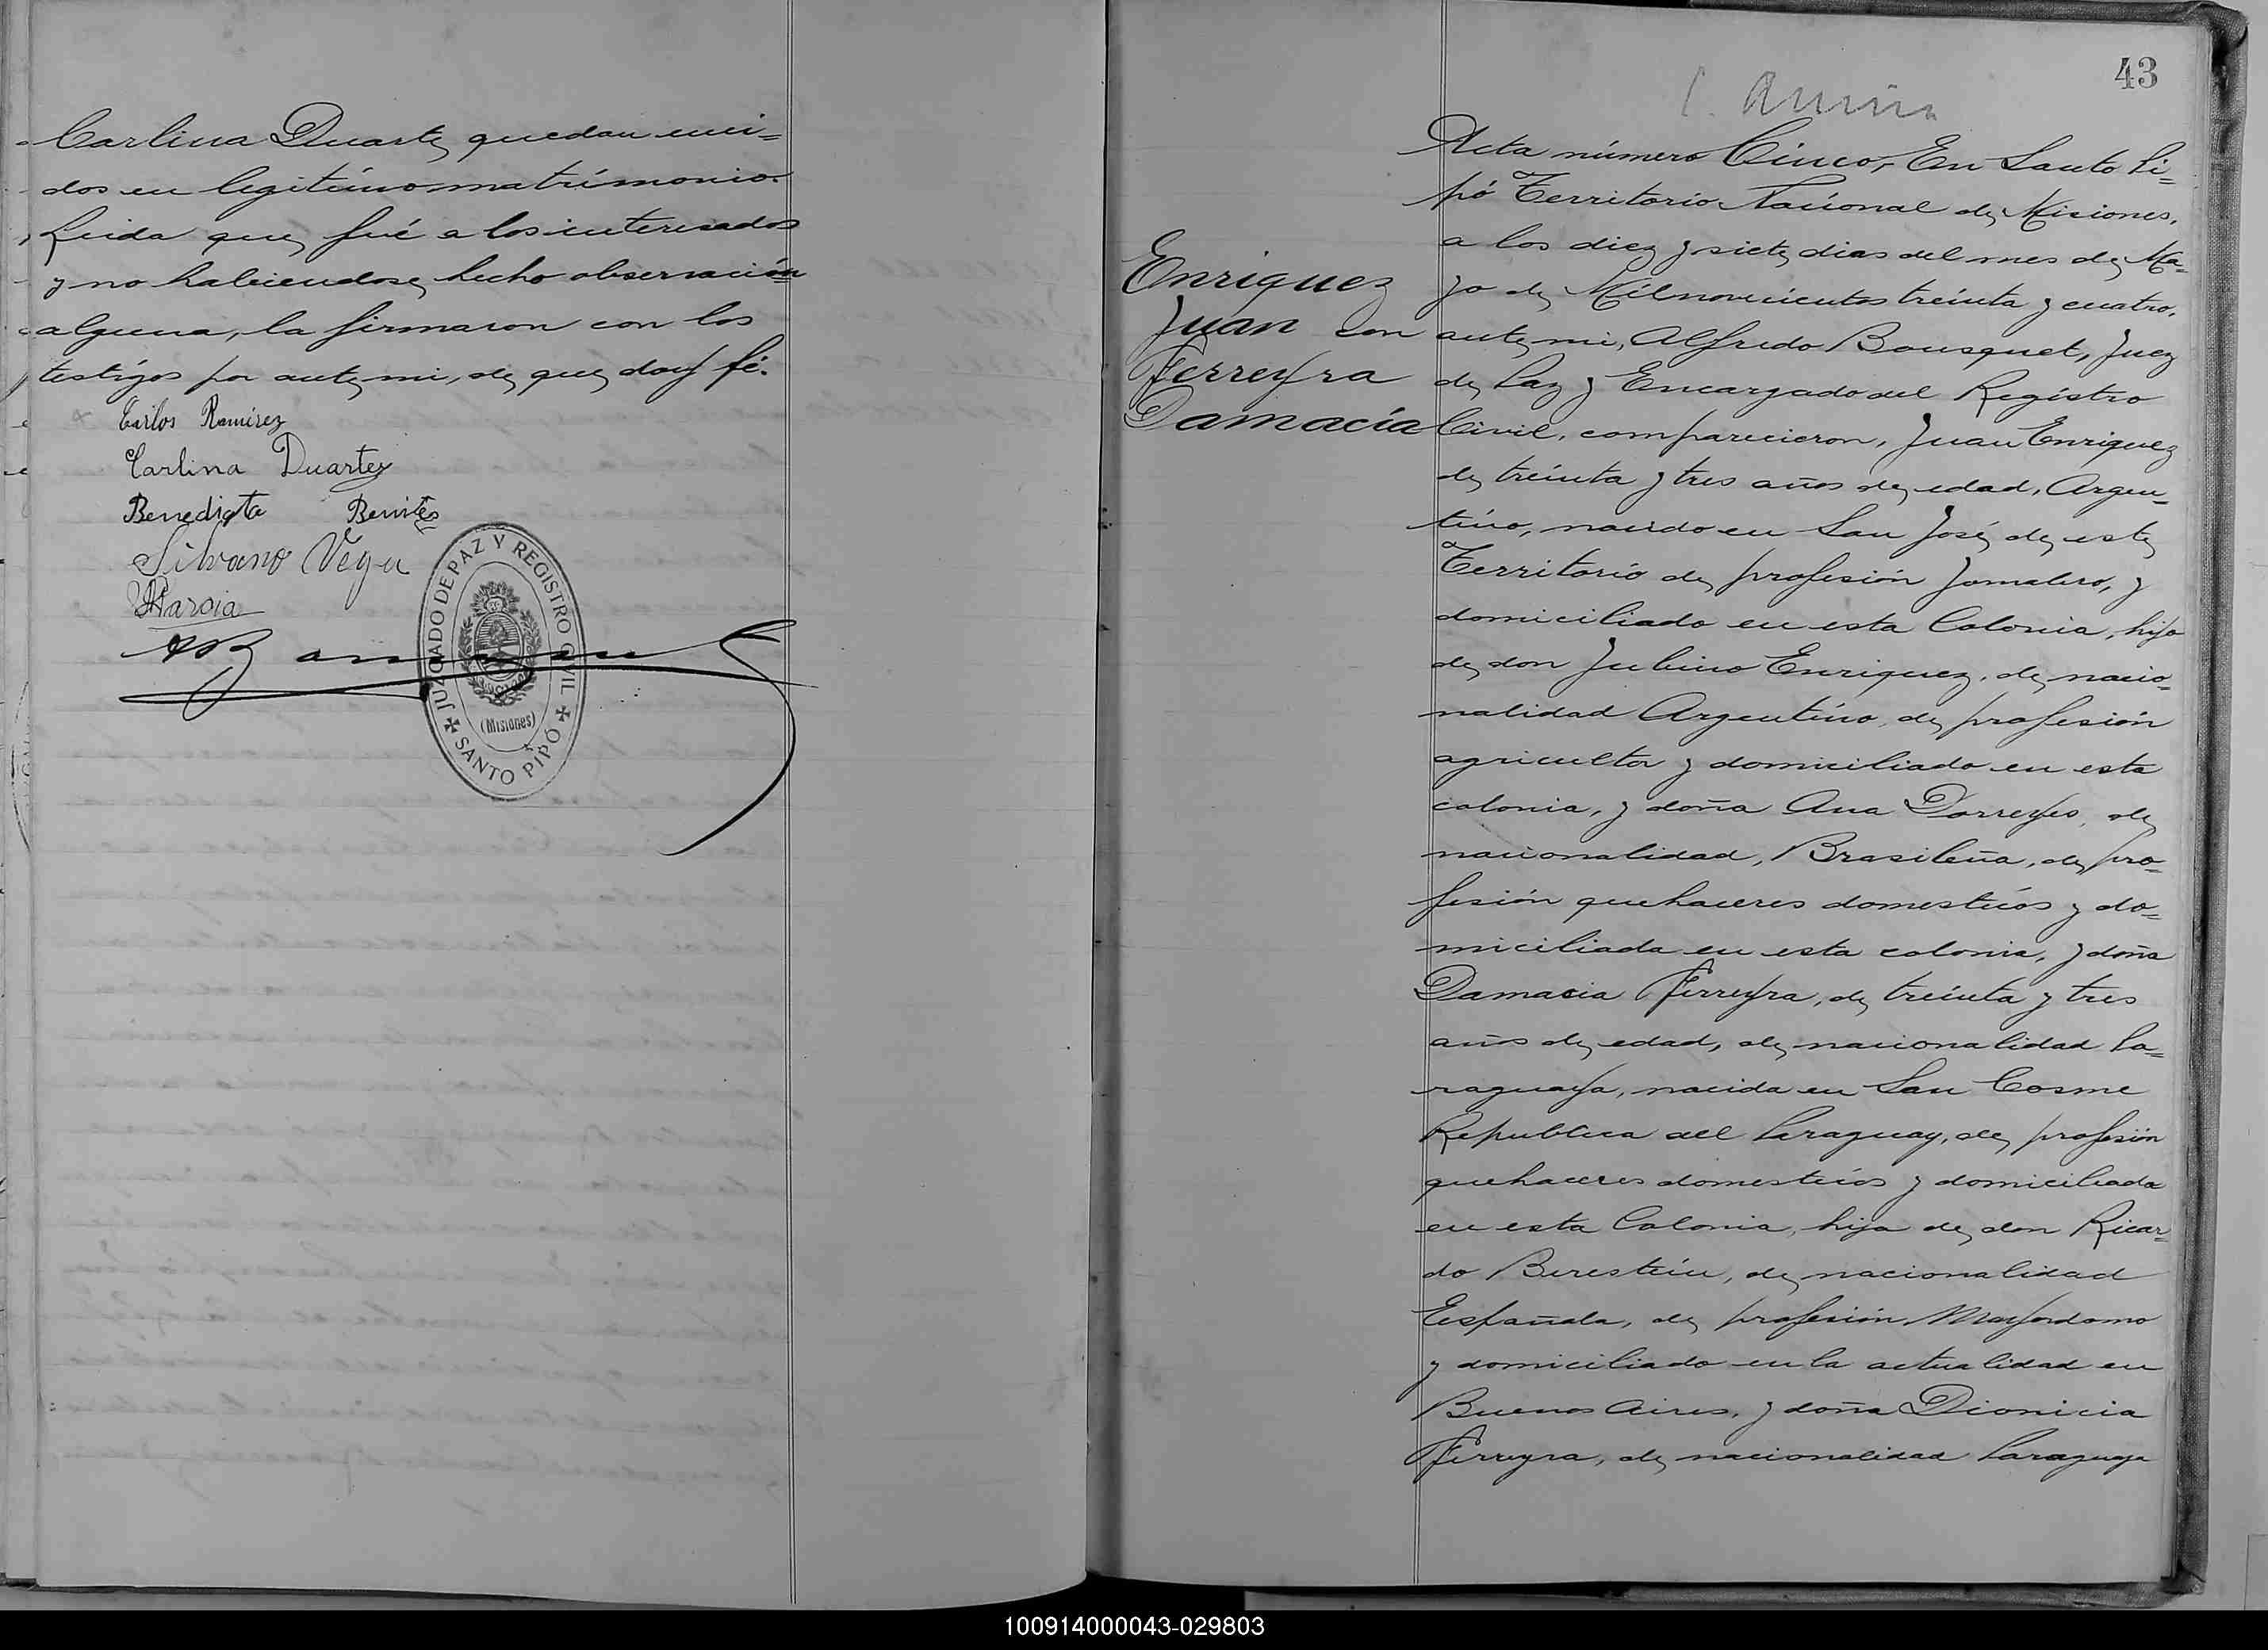 Carlina Duarte, quedan uni=
dos en legitimo matrimonio.
Leida que, fué a los interesados
y no habiendose, hecho observación
alguna, la firmaron con los
testigos por ante, mi, de, que, doy fé.
Carlos Ramírez
Carlina Duarte
Benedicta Benites
Silvano Vega
JUZGADO DE PAZ Y REGISTRO CIVIL
(Misiones)
SANTO PIPÓ
43
Enriquez
Juan con
Ferreyra
Damacia
Acta número Cinco, En Santo Pi=
pó Territorio Nacional de, Misiones,
a los diez y siete, dias del mes de, Ma=
yo de, Mil novecientos treinta y cuatro,
ante, mi, Alfredo Bousquet, Juez
de, Paz y Encargado del Registro
Civil, comparecieron, Juan Enriquez
de, treinta y tres años de, edad, Argen=
tino, nacido en San José, de, este,
Territorio de, profesión Jornalero, y
domiciliado en esta Colonia, hijo
de, don Jubino Enriquez, de, nacio=
nalidad Argentino, de, profesión
agricultor y domiciliado en esta
colonia, y doña Ana Dorreyes, de,
nacionalidad, Brasileña, de, pro=
fesión quehaceres domesticos y do=
miciliada en esta colonia, y doña
Damacia Ferreyra, de, treinta y tres
años de, edad, de, nacionalidad Pa=
raguaya, nacida en San Cosme
Republica del Paraguay, de, profesión
quehaceres domesticos y domiciliada
en esta Colonia, hija de, don Ricar=
do Berestein, de, nacionalidad
Española, de, profesión Mayordomo
y domiciliado en la actualidad en
Buenos Aires, y doña Dionicia
Ferreyra, de, nacionalidad Paraguaya
100914000043-029803